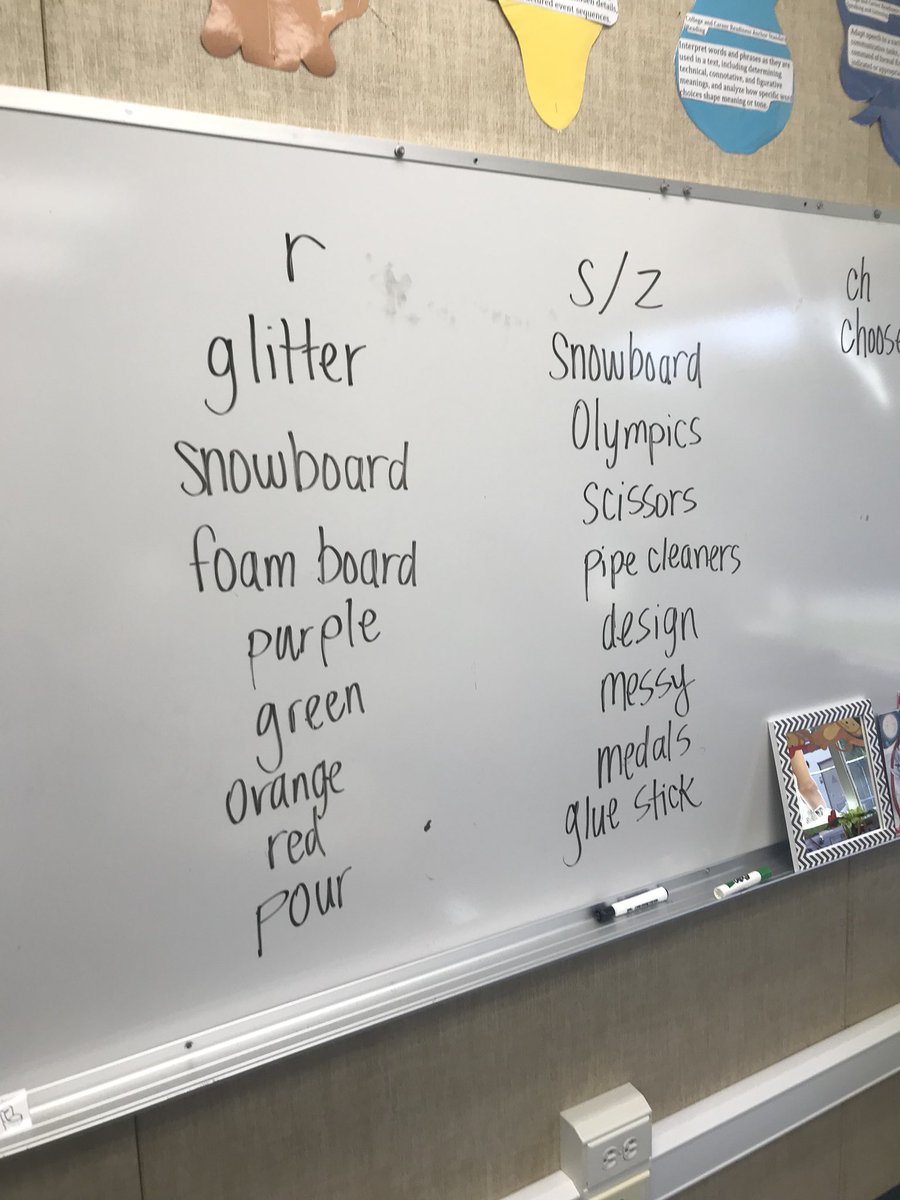 ured event sequences.
College and Career Readiness Anchor Standards
Reading
Interpret words and phrases as they are
used in a text, including determining
technical, connotative, and figurative
meanings, and analyze how specific word
choices shape meaning or tone.
Adapt speech to a
communicative tasks,
command of formal
indicated or appropriate
r
glitter
snowboard
foam board
purple
green
orange
red
pour
s/z
Snowboard
Olympics
scissors
pipe cleaners
design
messy
medals
glue stick
ch
choose